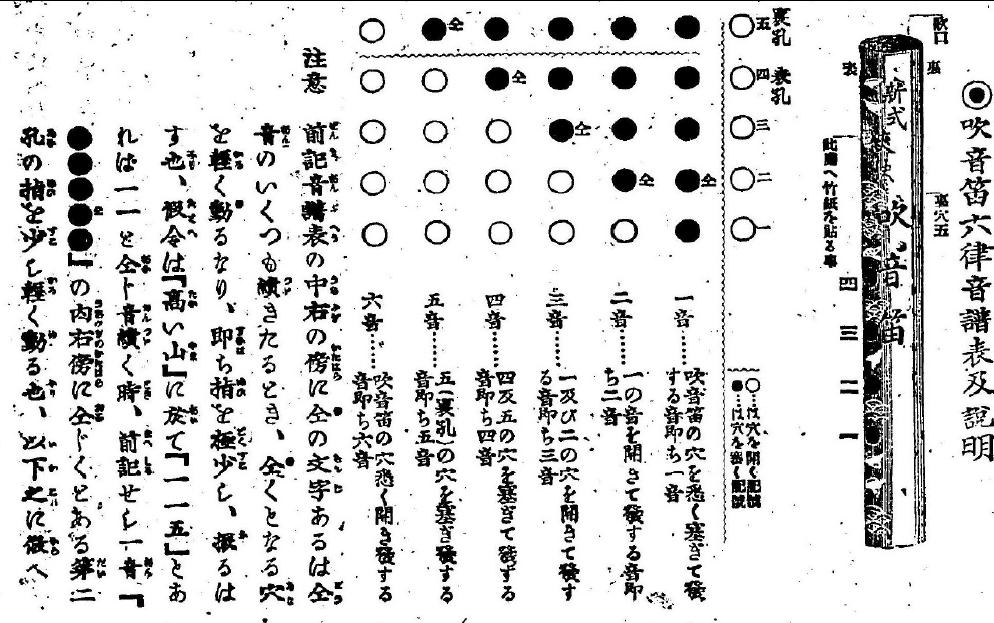 ◉吹音笛六律音譜表及説明
吹口
裏
表
裏穴五
此處へ竹紙を貼る事
新式
吹音笛
四
三
二
一
裏孔
表孔
五
四
三
二
一
○……は穴を開く記號
●……は穴を塞ぐ記號
一音……吹音笛の穴を悉く塞ぎて
する音即ち一音
二音……一の音を開きて發する音即
ち二音
三音……一及び二の穴を開きて發す
る音即ち三音
四音……四及五の穴を塞ぎて發する
音即ち四音
五音……五(裏孔)の穴を塞ぎ發する
音即ち五音
六音……吹音笛の穴悉く開き發する
音即ち六音
注意
前記音譜表の中右の傍に仝の文字あるは仝
音のいくつも續きたるとき、仝くとなる穴
を輕く動るなり、即ち指を極少し、振るは
す也、假令は『高い山』に於て『一一五』とあ
れば一一と仝じ音續く時、前記せし一音、『
●●●●仝●』の内右傍に仝じくとある第二
孔の指を少し輕く動る也、以下之に倣へ